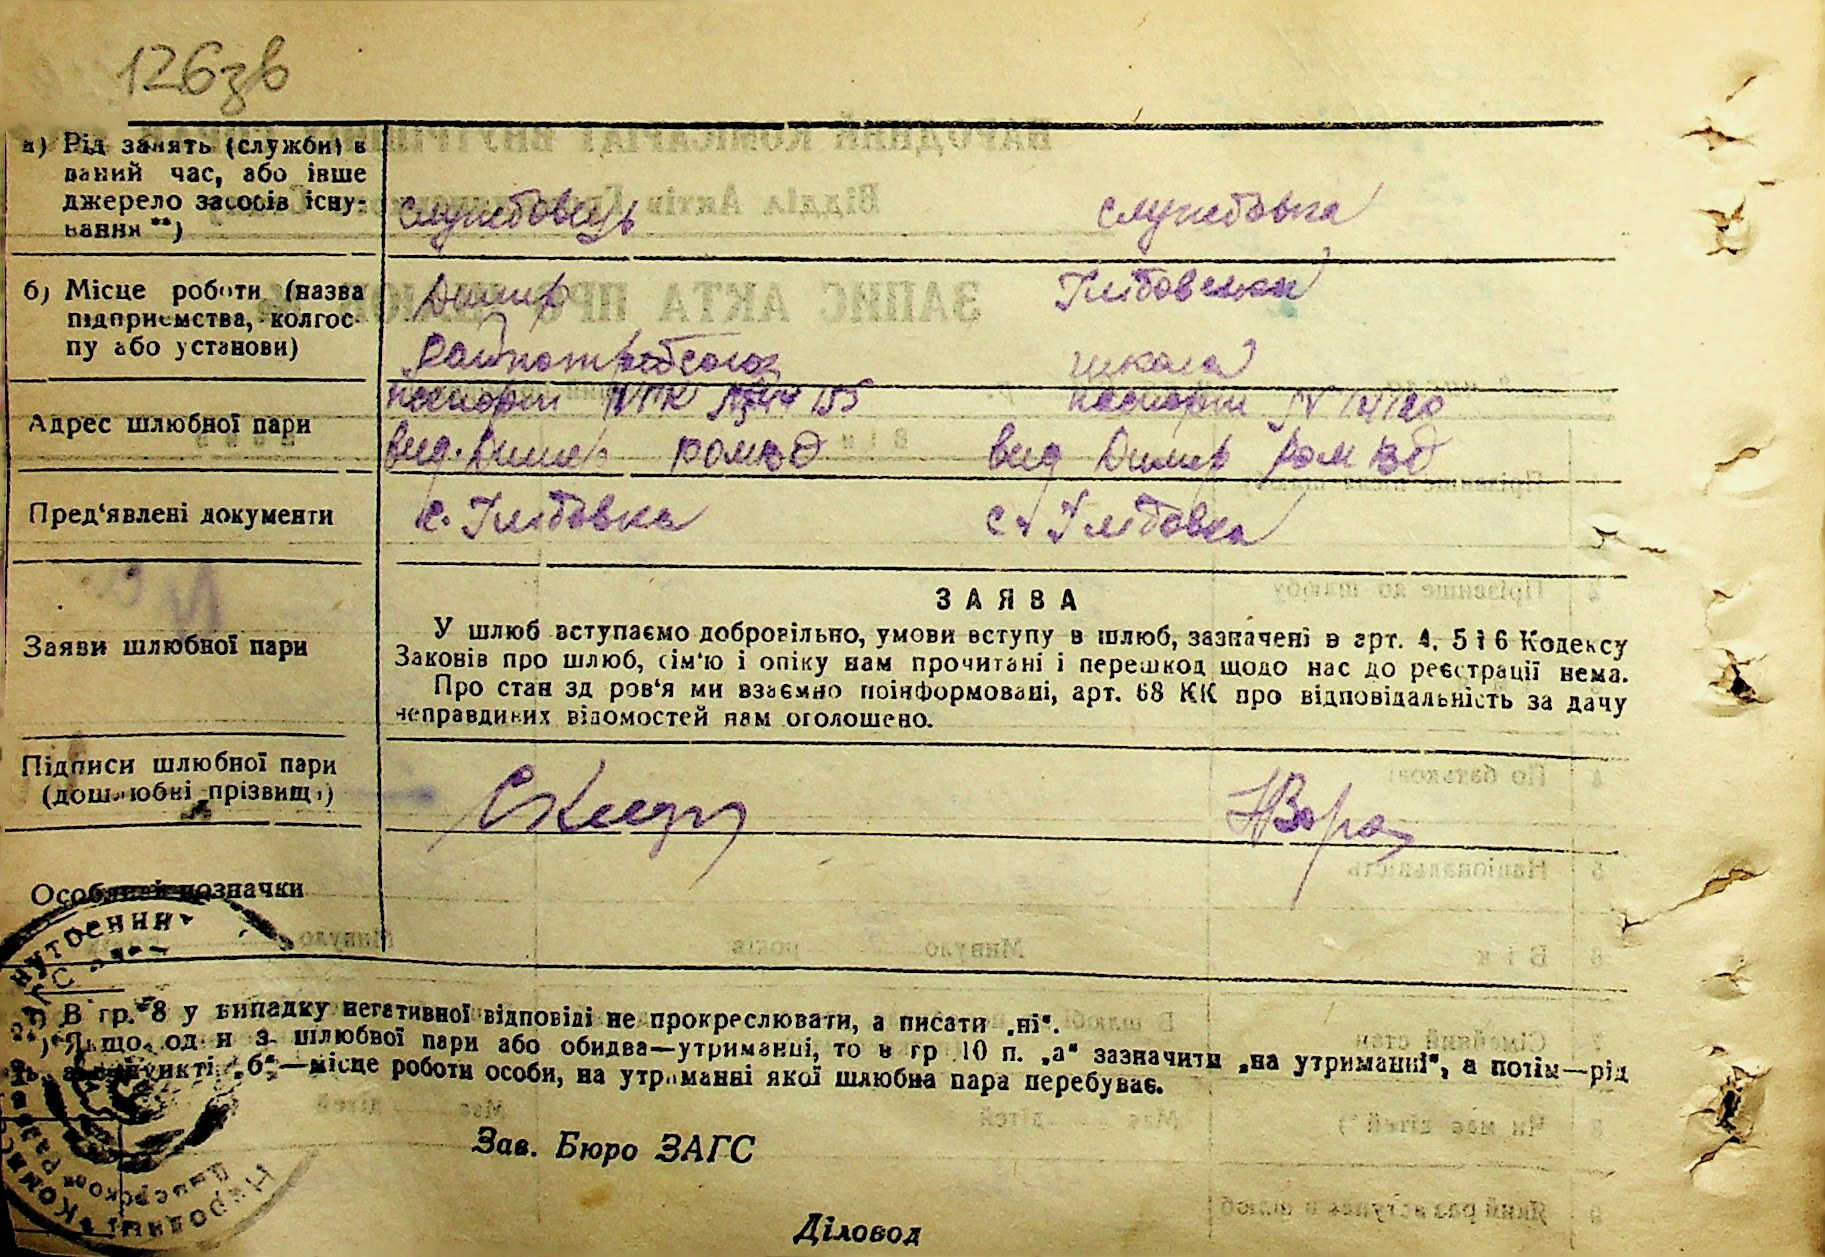 126зв
а) Рід занять (служби) в
даний час, або інше
джерело засобів існу-
вання **)
службовець службовка
б) Місце роботи (назва
підприємства, колгос-
пу або установи)
Димер Глібовська
Райпотребсоюз школа
Адрес шлюбної пари
паспорт 155 паспорт
вид. Димер вид Димер
Пред‘явлені документи
с. Глібовка с. Глібовка
Заяви шлюбної пари
ЗАЯВА
У шлюб вступаємо добровільно, умови вступу в шлюб, зазначені в арт. 4, 5 і 6 Кодексу
Законів про шлюб, сім‘ю і опіку нам прочитані і перешкод щодо нас до реєстрації нема.
Про стан здоров‘я ми взаємно поінформовані, арт. 68 КК про відповідальність за дачу
неправдивих відомостей нам оголошено.
Підписи шлюбної пари
(дошлюбні прізвищі)
Особливі позначки
*) В гр. 8 у випадку негативної відповіді не прокреслювати, а писати „ні“.
**) Якщо один з шлюбної пари або обидва—утриманці, то в гр 10 п. „а“ зазначити „на утриманні“, а потім—рід
а в пункті „б“—місце роботи особи, на утриманні якої шлюбна пара перебуває.
Зав. Бюро ЗАГС
Діловод